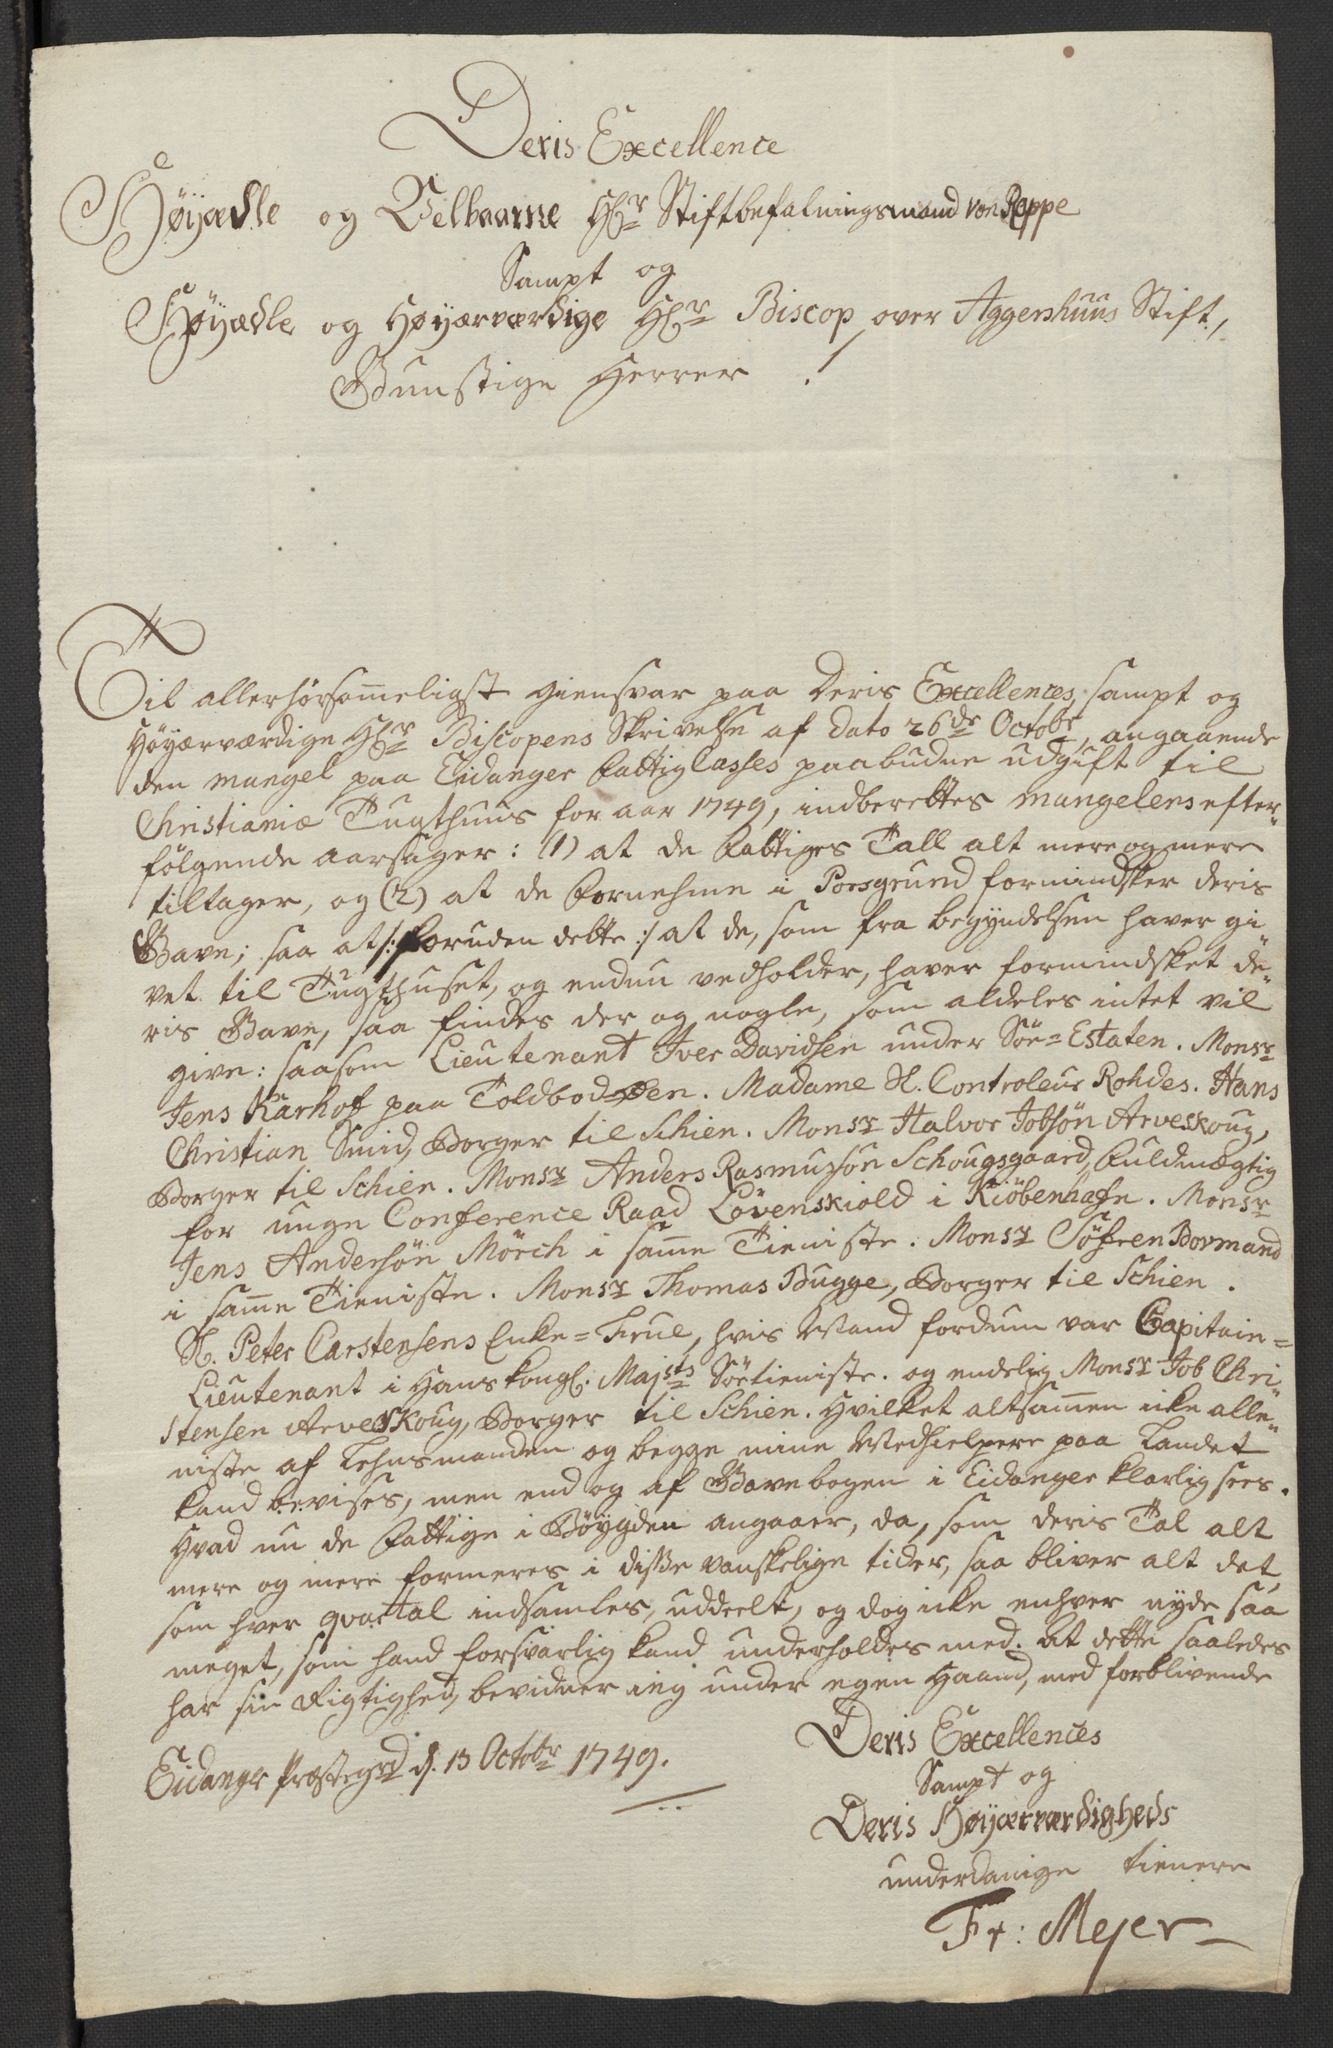 Deris Excellence
Höyædle og Velbaarne Hr Stiftbefalningsmand von Rappe
Sampt og
Höyædle og Höyærværdige Hr Biscop over Aggershuus Stift,
Gunstige Herrer!
Til allerhörsommeligst giensvar paa Deris Excellences, sampt og
Höyærværdige Hr Biscopens Skrivelse af dato 26de Octobr, angaaende
den mangel paa Eidanger Fattig Casses paabudne udgift til
Christianiæ Tugthuus for aar 1749, indberettes mangelens efter-
fölgende aarsager: (1) at de Fattiges Tall alt mere og mere
tiltager, og (2) at de Fornehme i Porsgrund formindsker deris
Gave; saa at /: foruden dette :/ at de, som fra begyndelsen haver gi-
vet til Tugthuset, og endnu vedholder, haver formindsket de-
ris Gave, saa findes der og nogle, som aldeles intet vil
give: saasom Lieutenant Iver Davidsen under Söe-Estaten. Monsr
Jens Karhof paa Toldboden. Madame Sl. Controleur Rohdes. Hans
Christian Smid, Borger til Schien. Monsr Halvor Jobsön Arveskoug,
Borger til Schien. Monsr Anders Rasmussön Schougsgaard, Fuldmægtig
for unge Conference Raad Lövenskiold i Kiöbenhafn. Monsr
Jens Andersön Mörch i samme Tieniste. Monsr Söfren Bormand
i samme Tieniste. Monsr Thomas Bugge, Borger til Schien.
Sl. Peter Carstensens Enke-Frue, hvis Mand fordum var Capitain-
Lieutenant i Hans Kongl. Majsts Söetieniste. og endelig Monsr Job Chri-
stensen Arveskoug, Borger til Schien. Hvilket altsammen icke alle-
niste af Lehnsmanden og begge mine Medhielpere paa Landet
kand bevises, men end og af Gavebogen i Eidanger klarlig sees.
Hvad nu de Fattige i Böygden angaaer, da, som deris Tal alt
mere og mere formeres i disse vanskelige tider, saa bliver alt det,
som hver qvartal indsamles, uddeelt, og dog icke enhver nyde saa
meget, som hand forsvarlig kand underholdes med. At dette saaledes
har sin Rigtighed, bevidner ieg under egen Haand, med forblivende
Deris Excellences
Eidanger Præstegrd d. 13 Octobr 1749.
Sampt og
Deris Höyærværdigheds
underdanige tienere
Fr: Mejer